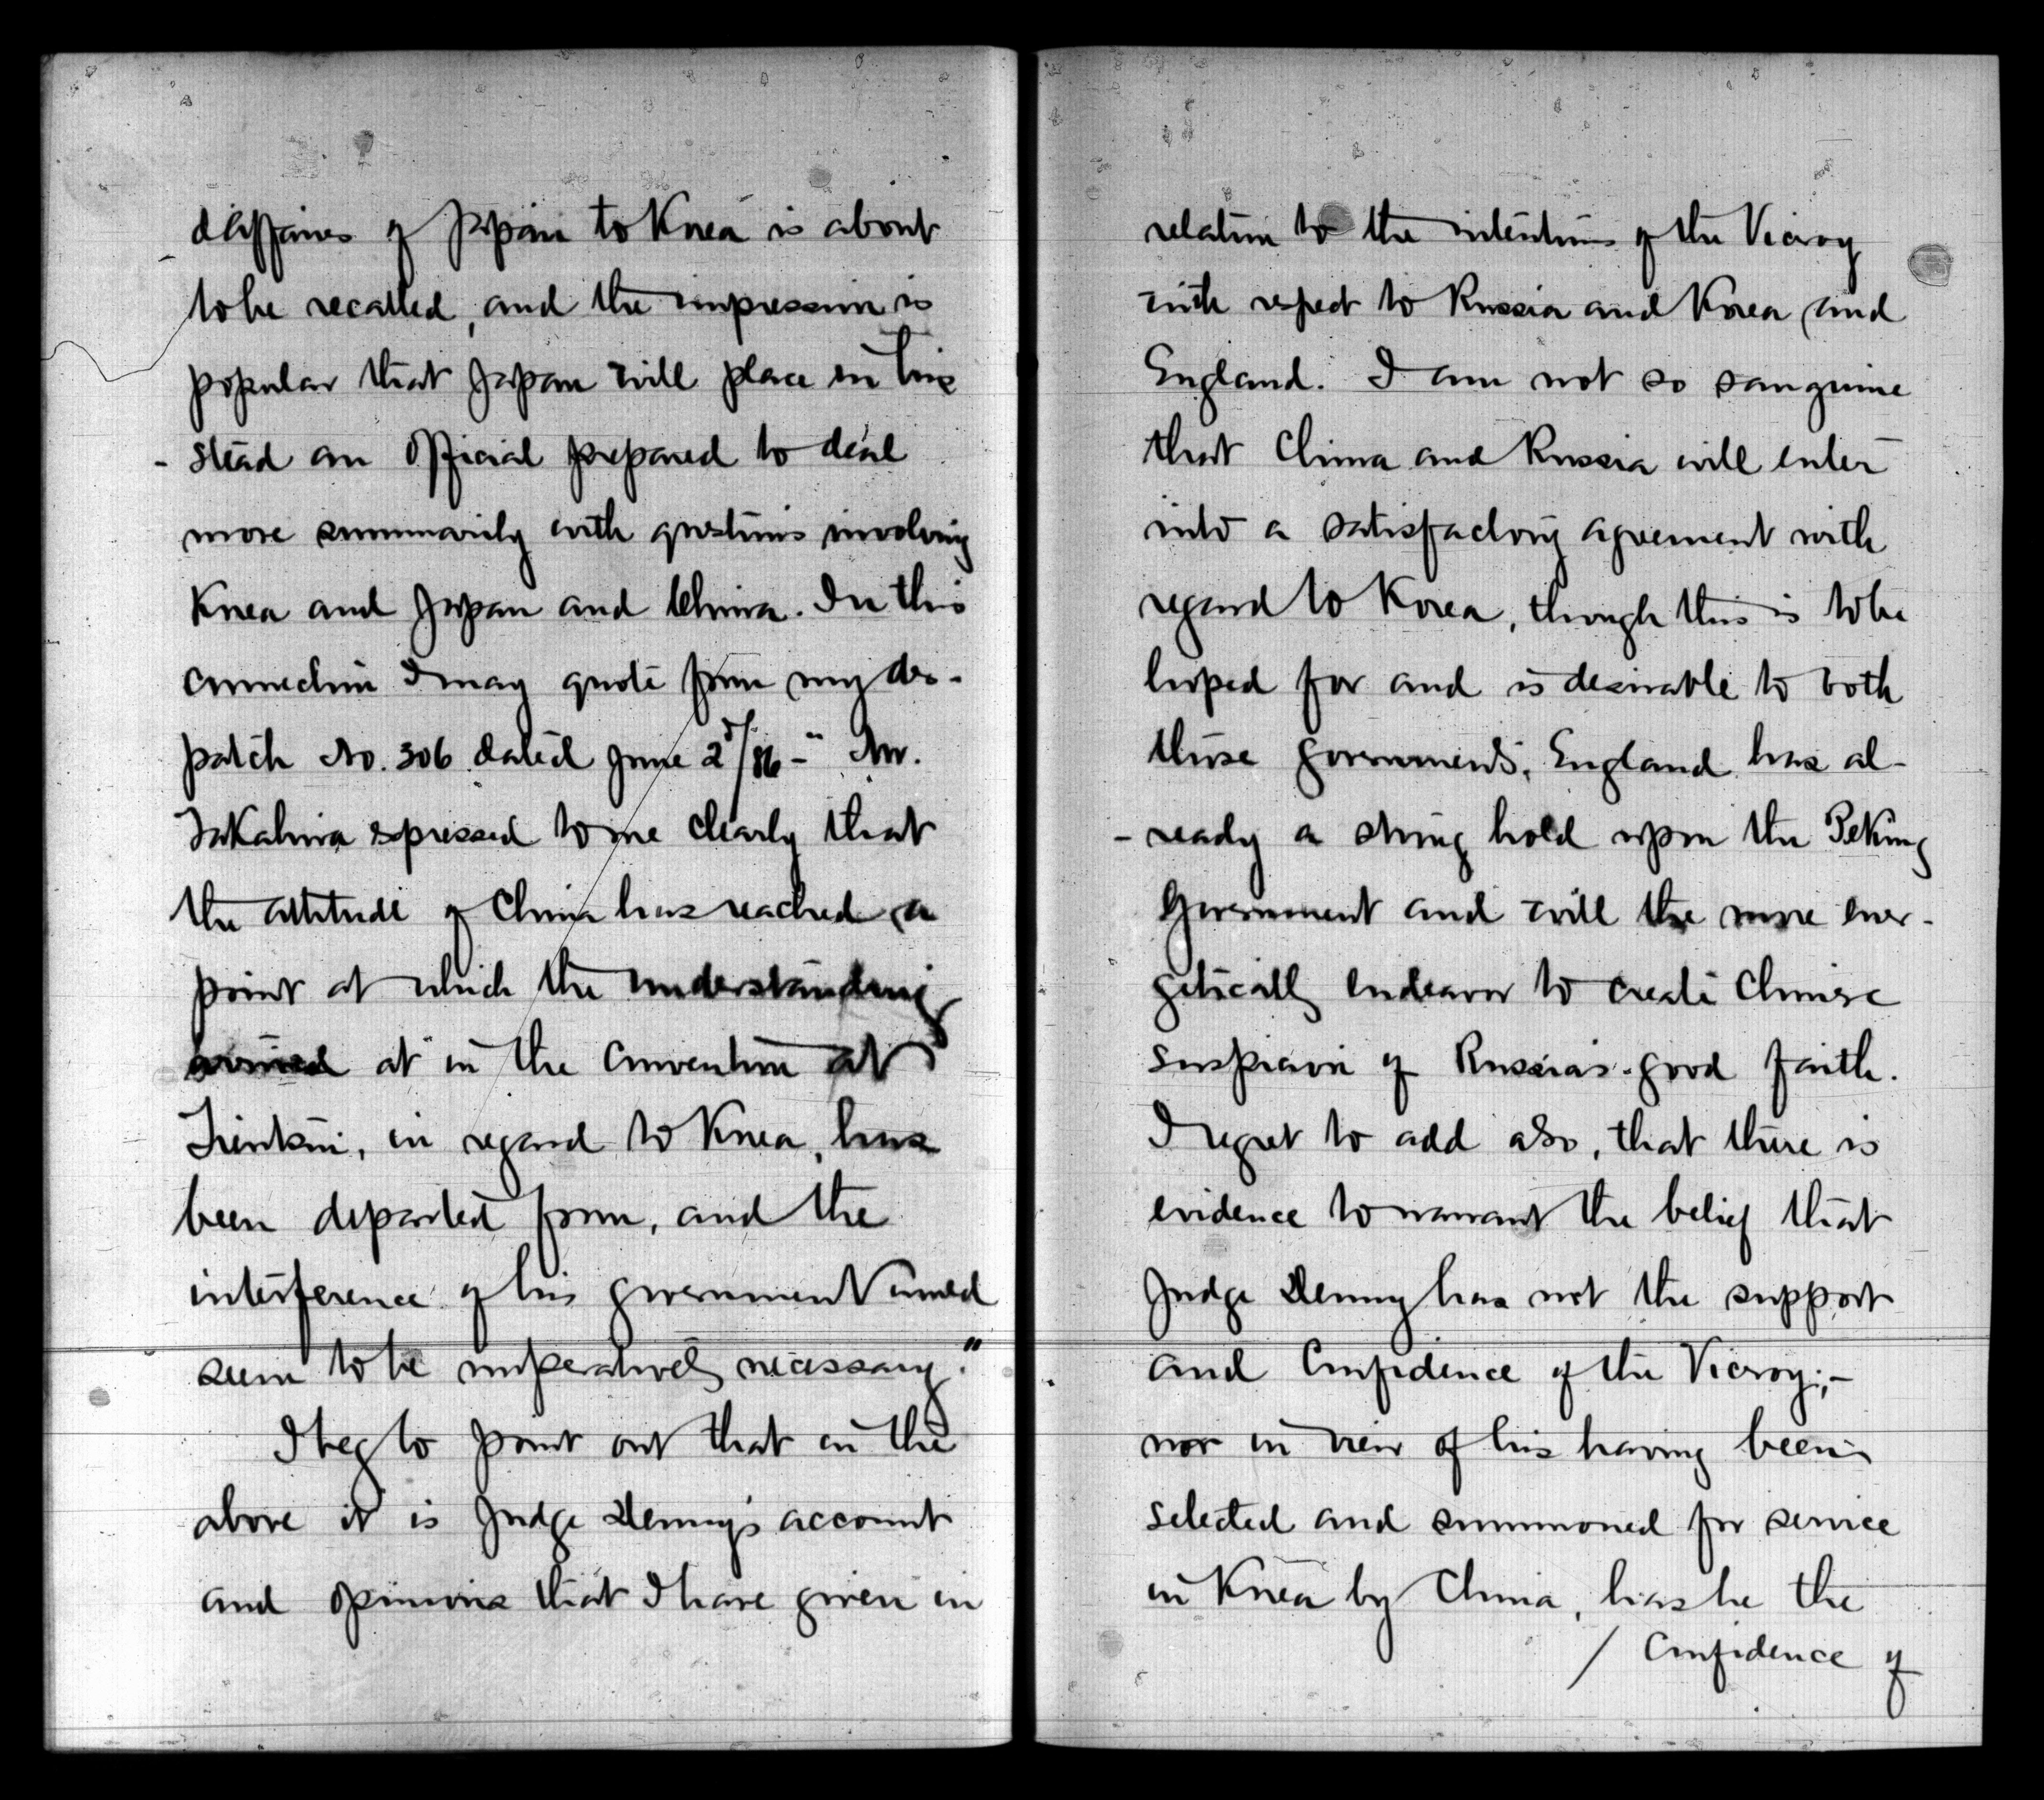 d'affaires of Japan to Korea is about
to be recalled, and the impression is
popular that Japan will place in his
- stead an official prepared to deal
more summarily with questions involving
Korea and Japan and China. In this
connection I may quote from my des-
patch No. 306 dated June 2d/86 - " Mr.
Takahira expressed to me clearly that
the attitude of China has reached a
point at which the understanding
arrived at in the Convention at
Tientsin, in regard to Korea, has
been departed from, and the
interference of his government would
seem to be imperatively necessary."
I beg to point out that in the
above it is Judge Denny's account
and opinions that I have given in
relation to the intentions of the Viceroy
with respect to Russia and Korea and
England. I am not so sanguine
that China and Russia will enter
into a satisfactory agreement with
regard to Korea, though this is to be
hoped for and is desirable to both
those governments. England has al-
- ready a strong hold upon the Peking
Government and will the more ener-
getically endeavor to create Chinese
suspicion of Russia's good faith.
I regret to add also, that there is
evidence to warrant the belief that
Judge Denny has not the support
and confidence of the Viceroy;-
nor in view of his having been
selected and summoned for service
in Korea by China, has he the
/ Confidence of